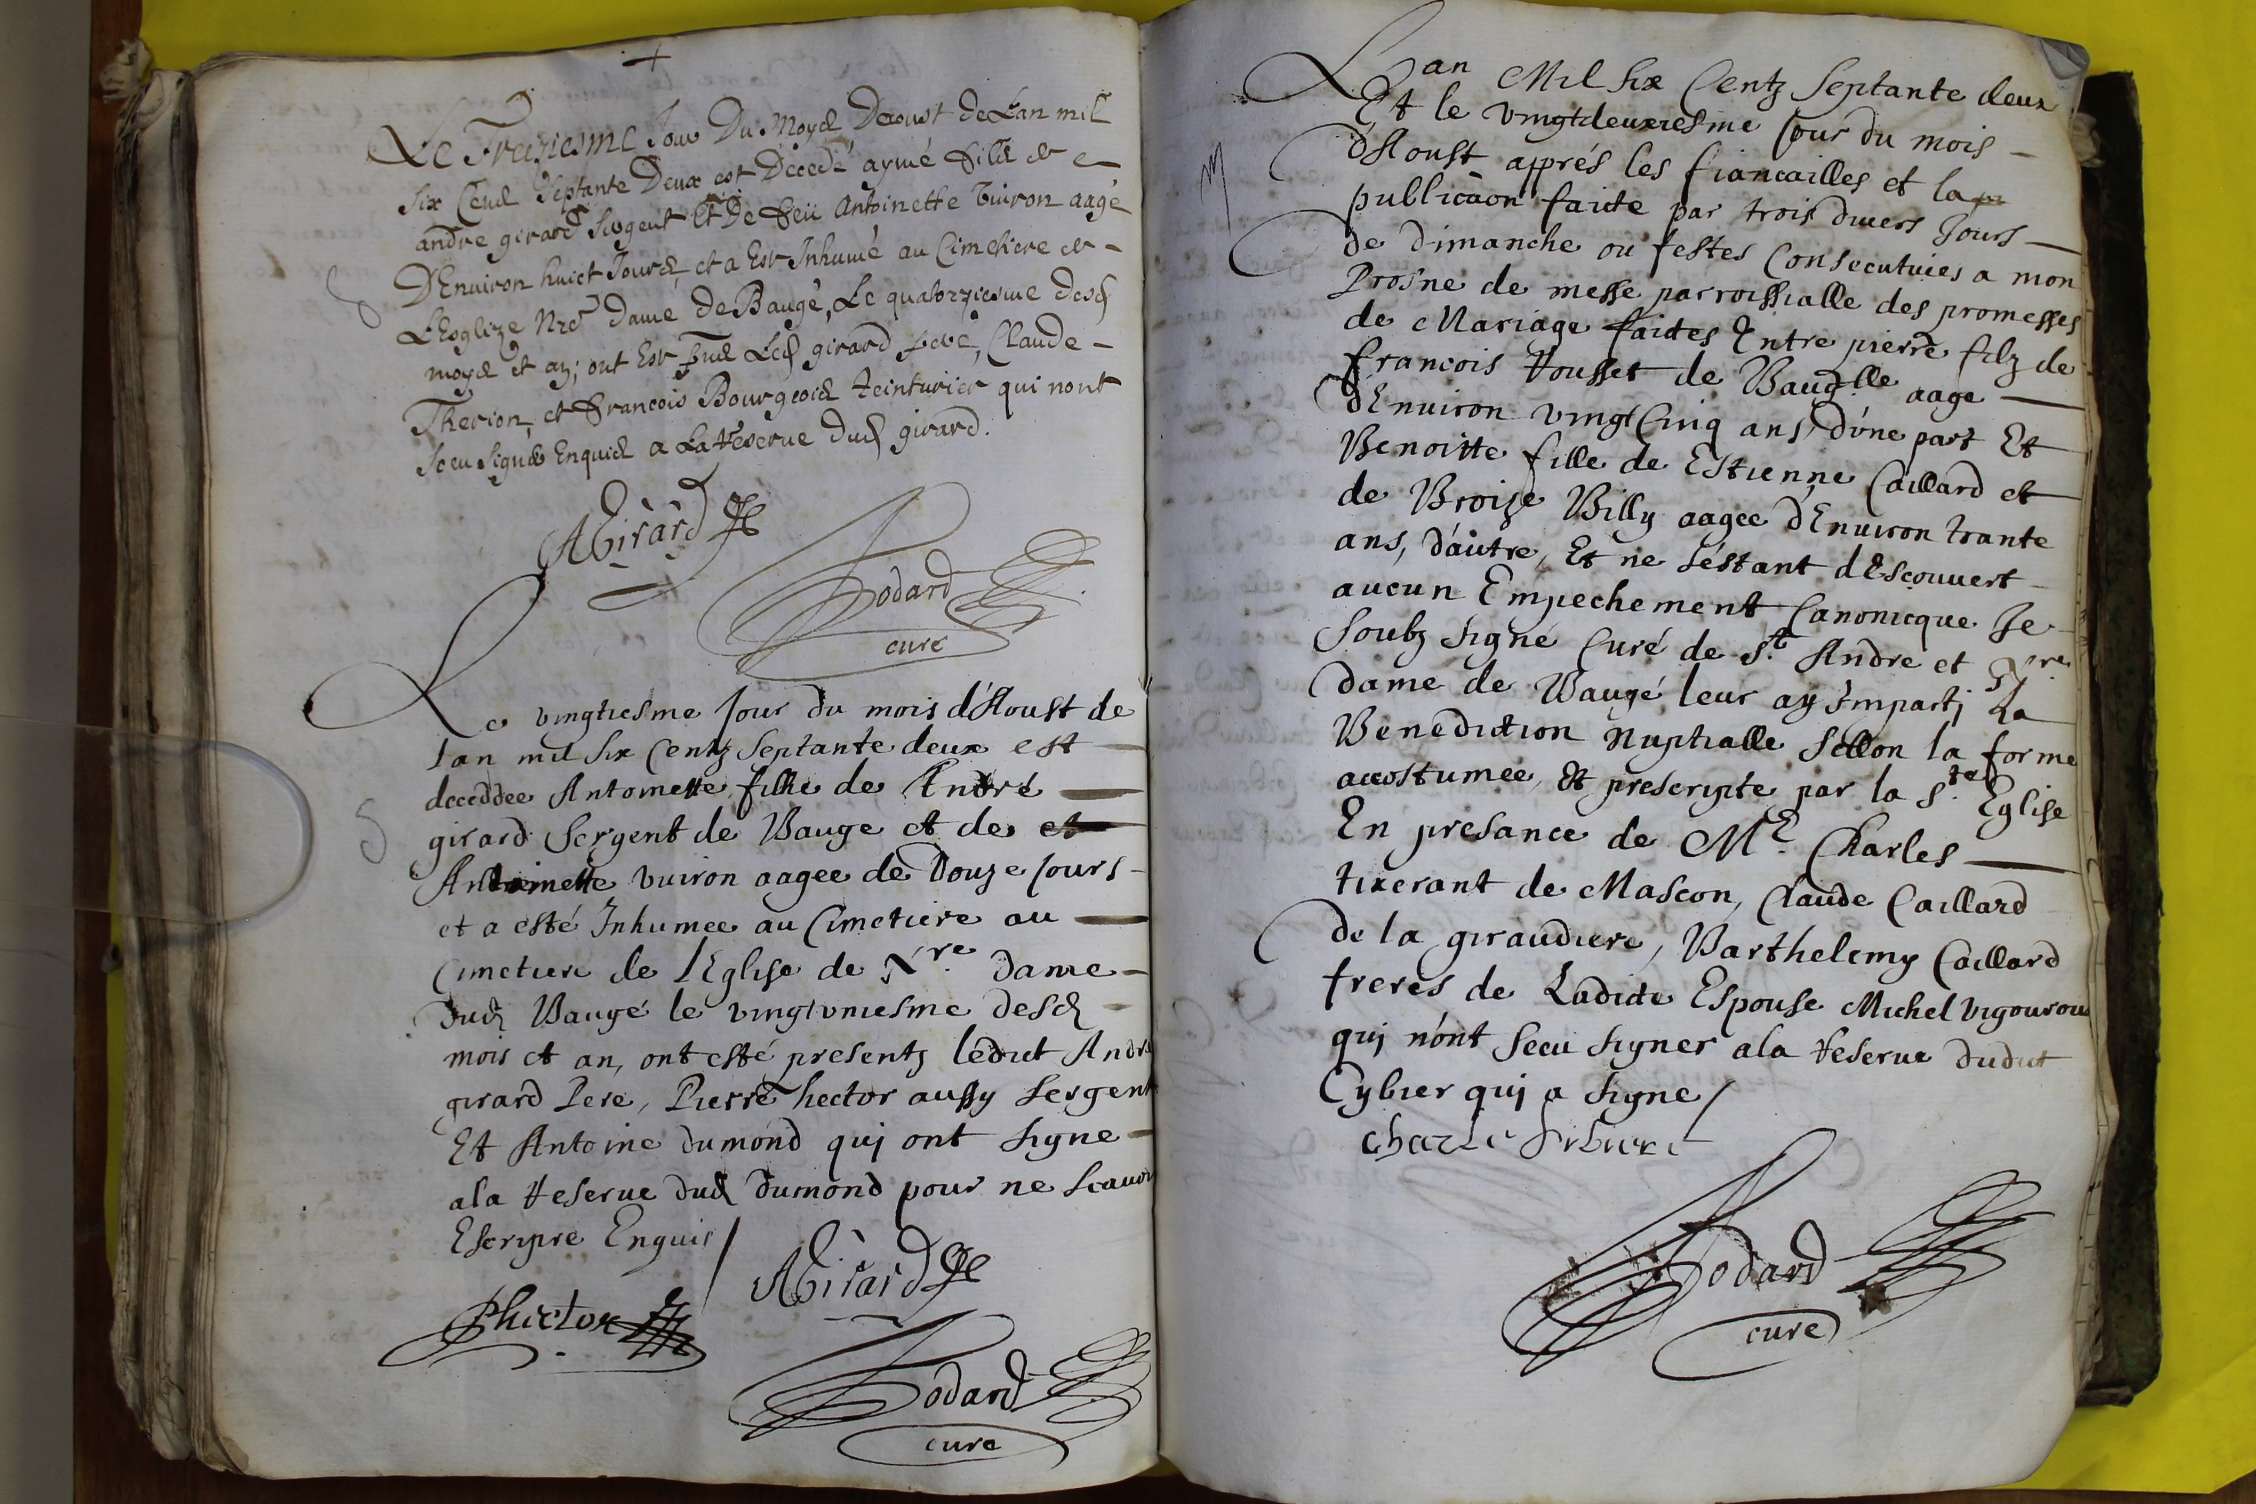 Le Treziesme Jour Du Moys Daoust De Lan mil
six Cens Septante Deux est Décedé aymé fils de
andre girard sergent Et De feü Antoinette Vuiron aagé
D'Enuiron huict Jours, et a Esté Inhumé au Cimetiere de
L'Esglize Nre dame de Baugé, Le quatorziesme desd
moys et an; ont Esté Led girard pere, Claude
Therion, et francois Bourgeois teinturier qui nont
sceu signé Enquis a La reserue dud girard.
AGirard
Bodard
curé
Le vingtiesme Jour du mois d'Aoust de
lan mil six Centz Septante deux est
deceddee Antoinette fille de André
girard Sergent de Baugé et de
Antoinette vuiron aagee de Douze Jours
et a esté Inhumee au Cimetiere au
Cimetiere de l'Eglise de Nre. Dame
dud Baugé le vingtvniesme desd
mois et an, ont esté presentz ledict André
girard Pere, Pierre hector aussy sergent
Et Antoine dumond qui ont signe
a la reserue dud dumond pour ne scauoir
Escripre Enquis /
Phector
AGirard
Bodard
curé
M
Lan Mil six Centz Septante deux
Et le vingtdeuxiesme Jour du mois
d'Aoust apprés les fiancailles et la
publicaon faicte par trois diuers Jours
de dimanche ou festes Consecutuies a mon
Prosne de messe parroissialle des promesses
de Mariage faictes Entre pierre filz de
francois Rousset de Baug. lle aage
d'Enuiron vingt Cinq ans, d'vne part Et
Benoitte fille de Estienne Caillard et
de Broize Billy aagee d'Enuiron trante
ans, d'autre, Et ne s'estant dEscouuert
aucun Empechement Canonicque Je
soubz signé Curé de St. Andre et Nre.
dame de Baugé leur ay Imparty La
Benediction nuptialle sellon la forme
accostumee, Et prescripte par la Ste. Eglise
En presance de Me. Charles
tixerant de Mascon, Claude Caillard
de la giraudiere, Barthelemy Caillard
freres de Ladicte Espouse Michel vigourou
qui n'ont sceu signer a la reserue dudict
Cybier qui a signe /
Charle
Bodard
curé